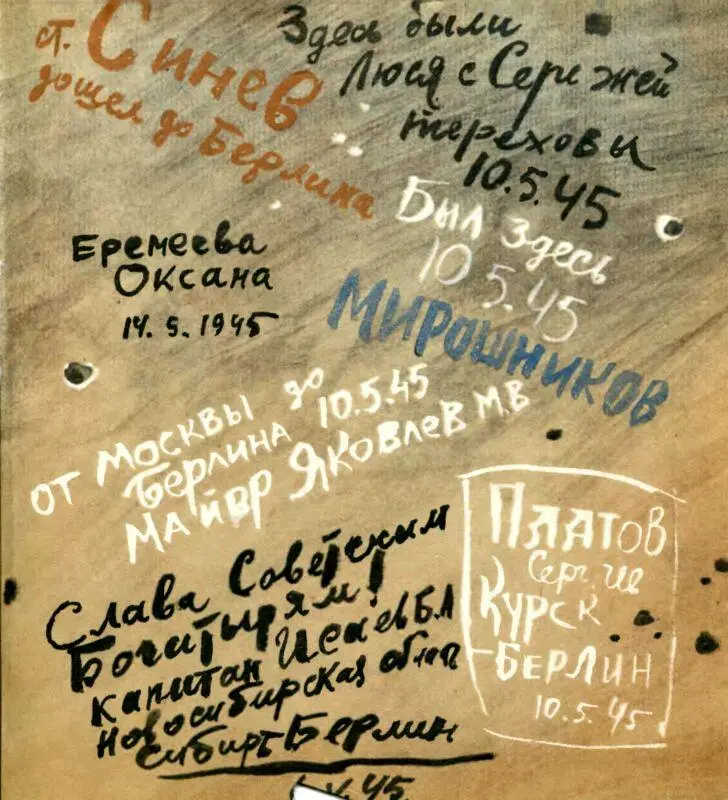 ст. Синев
дошел до Берлина
Здесь были
Люся с Сережей
Тереховы
10.5.45
Был здесь
10.5.45
Мирошников
Еремеева
Оксана
14.5.1945
от Москвы до
Берлина 10.5.45
майор Яковлев М.В
Слава Советским
Богатырям!
капитан Исаев Б.А
Новосибирская обл
Сибирь Берлин
45
Платов
Серг.
Курск
-Берлин
10.5.45